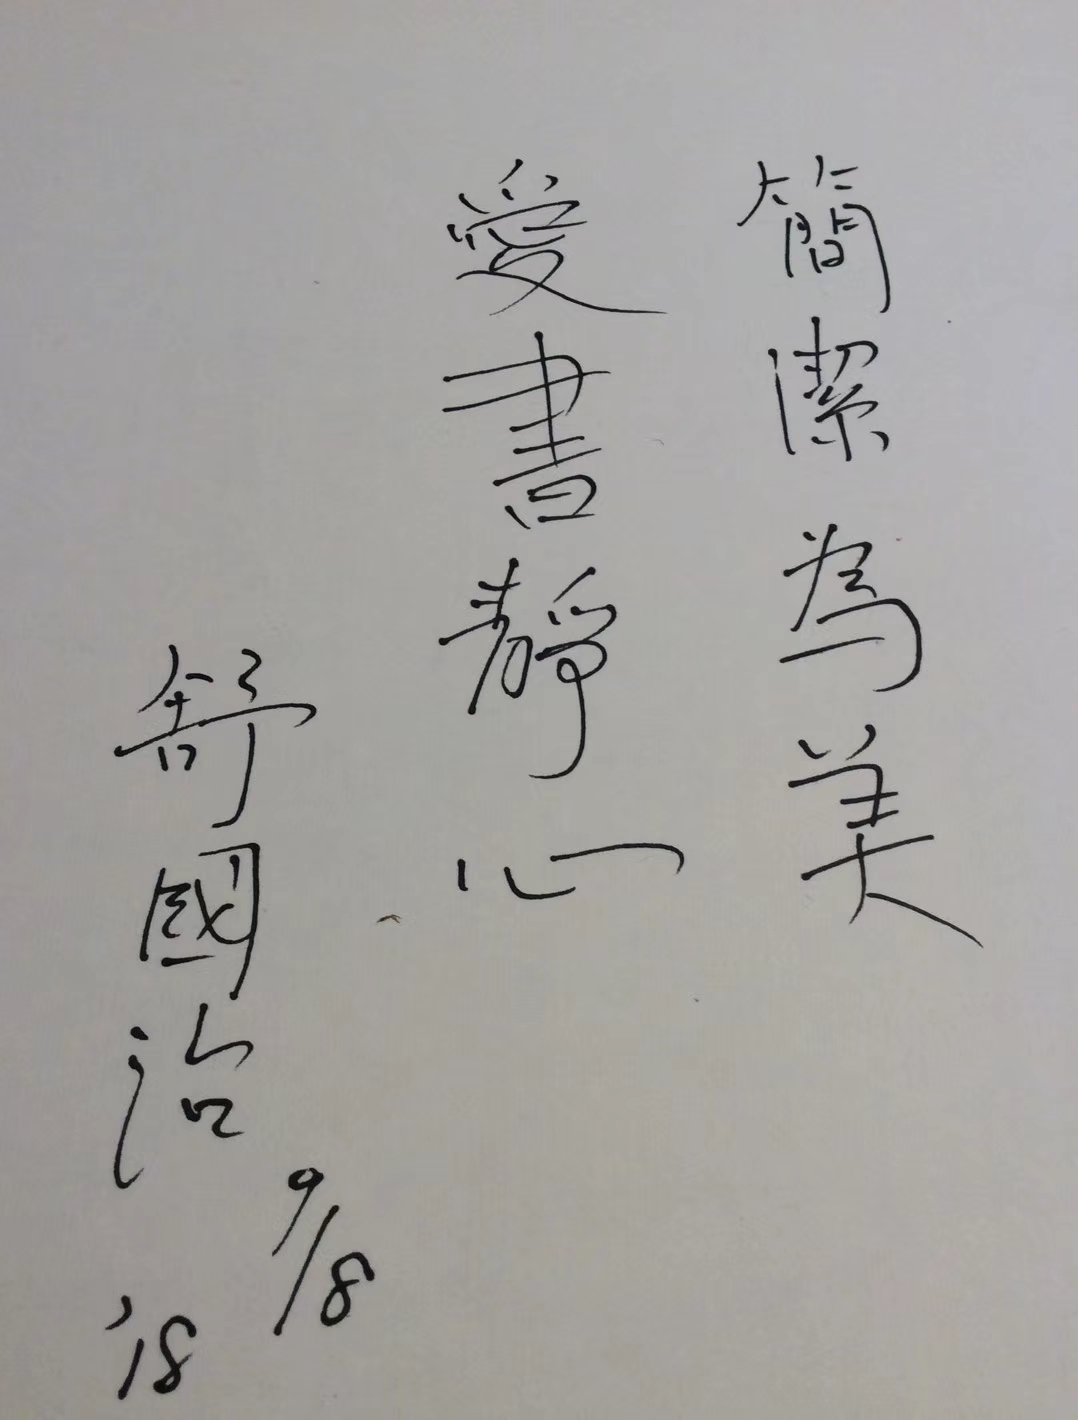 簡潔為美
愛書靜心
舒國治
9/8
'18